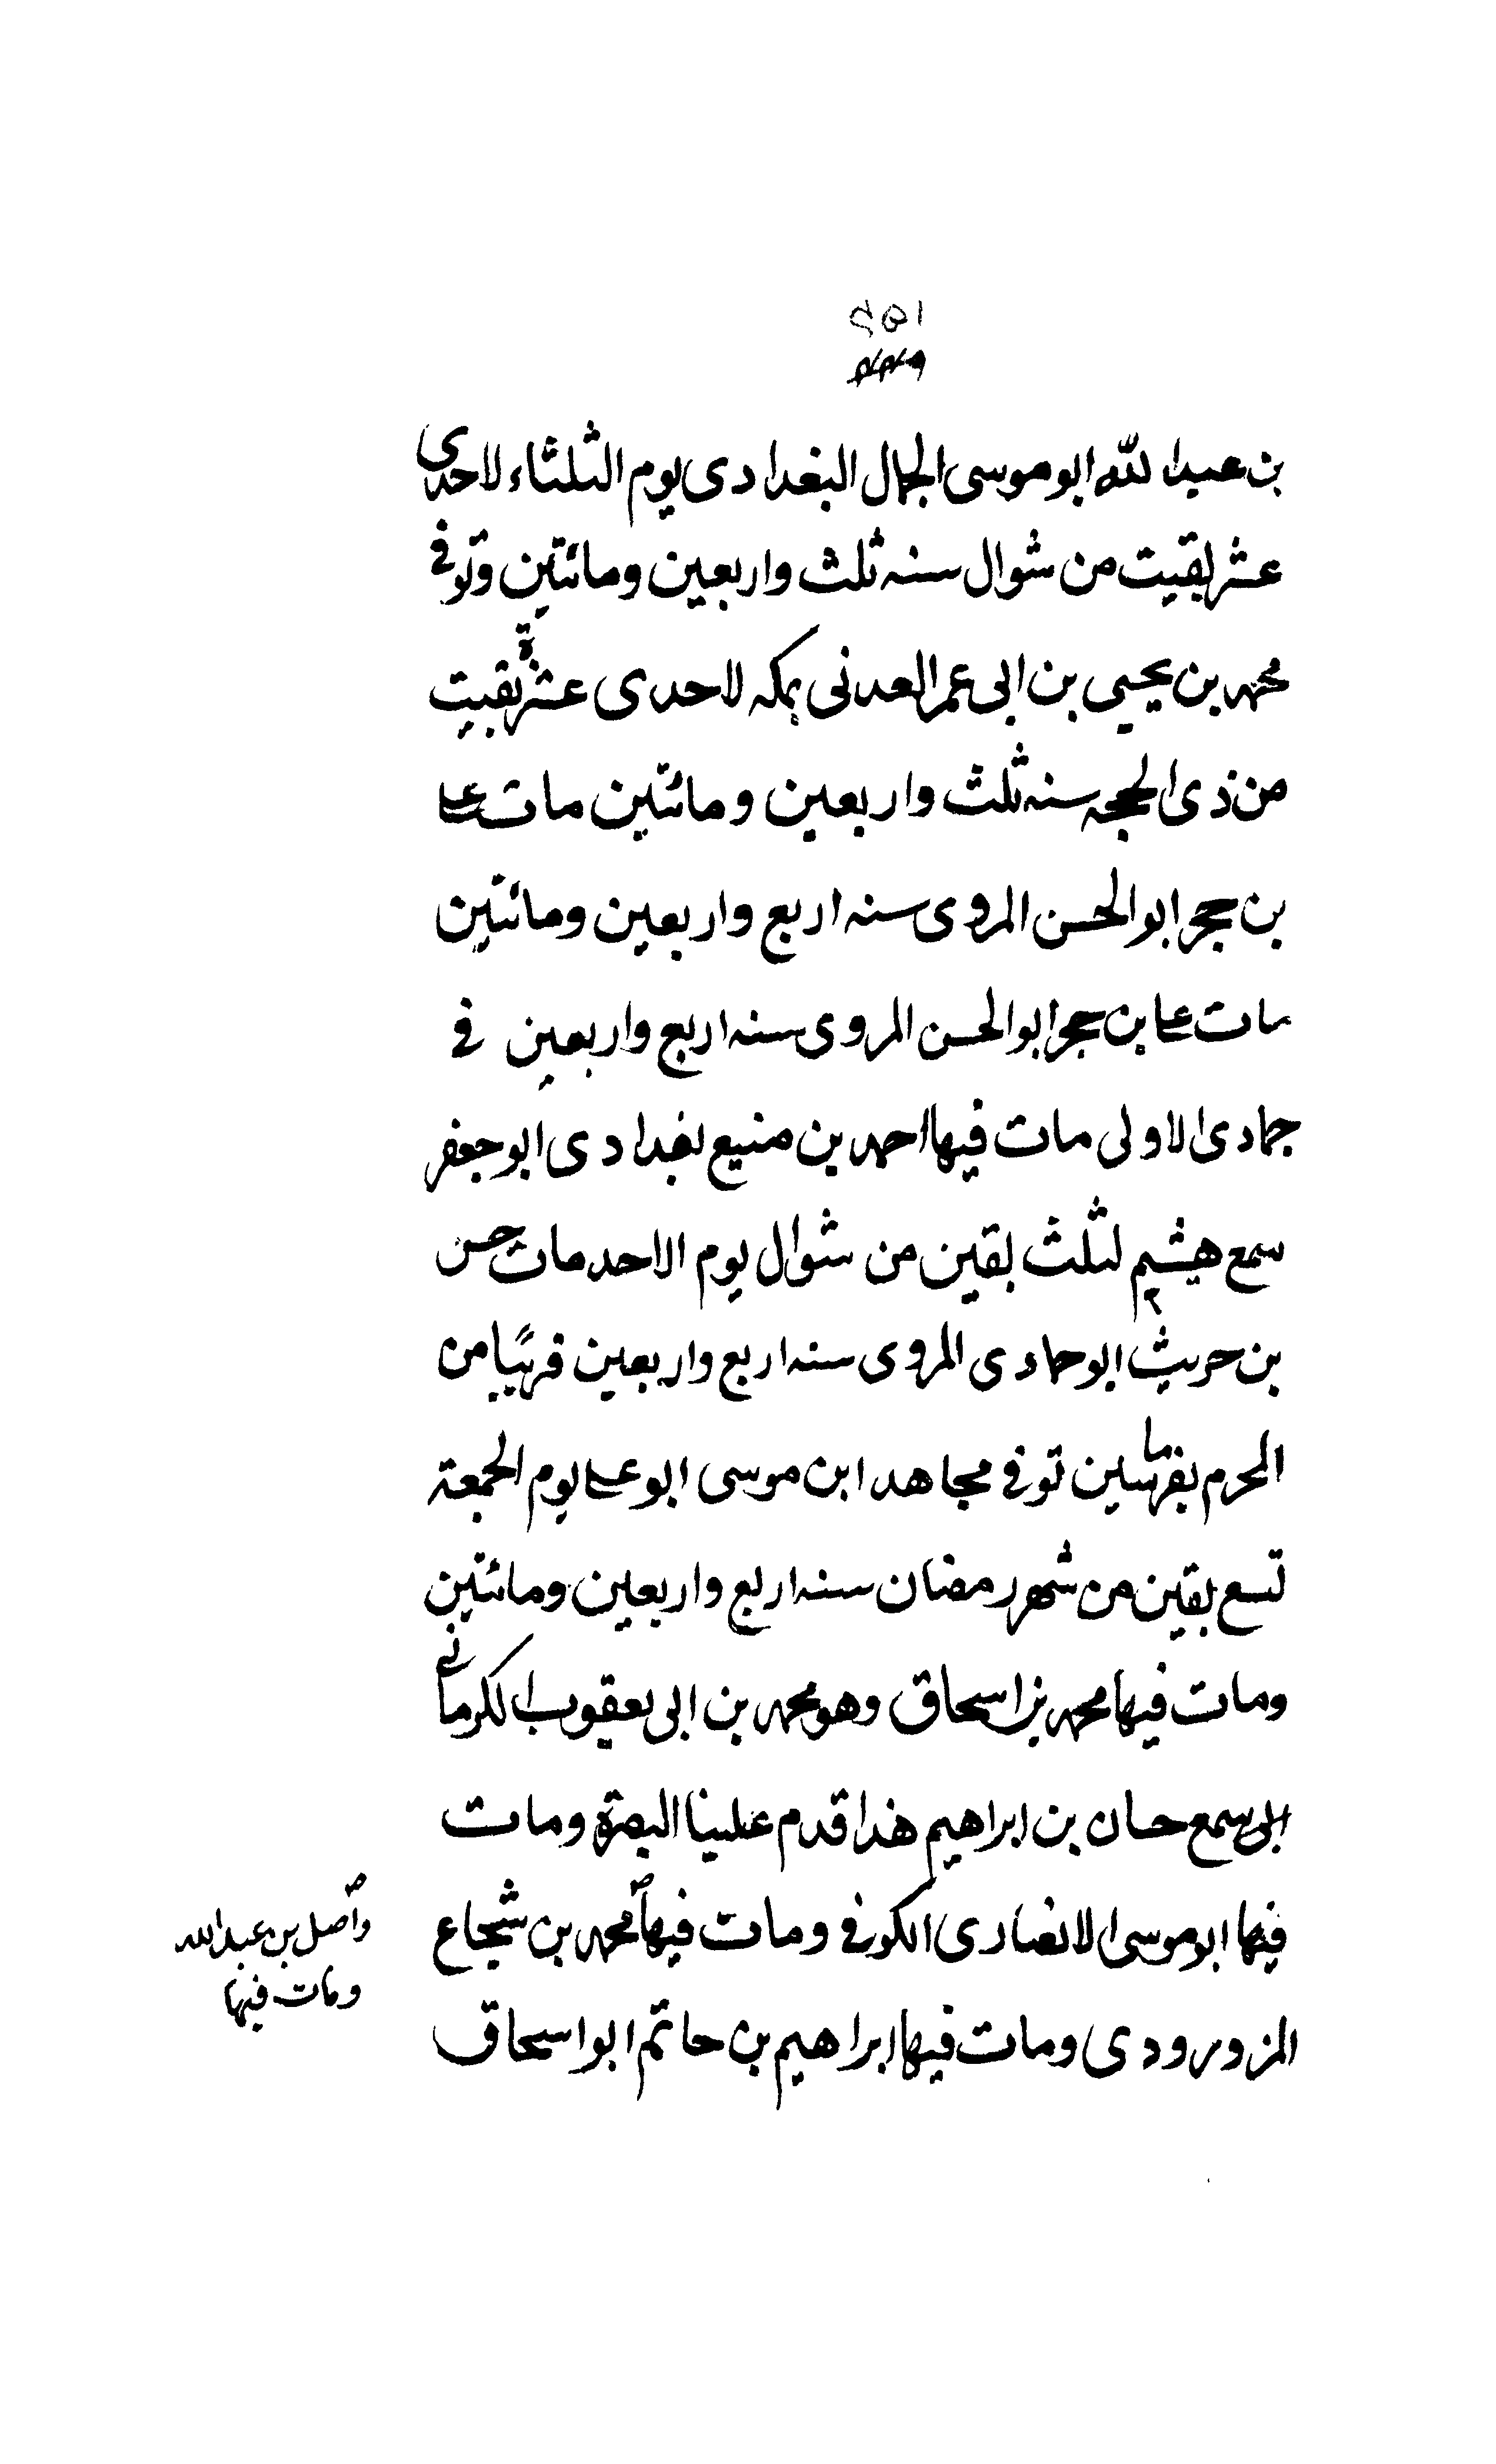 ١٥٢
بن عبدالله ابو موسى الجمال البغدادى يوم الثلثاء لاحدى
عشر بقيت من شوال سنه ثلث واربعين ومائتين وتوفى
محمد بن يحيى بن ابى عمر العدنى بمكه لاحدى عشرة بقيت
من ذى الحجه سنه ثلث واربعين ومائتين مات على
بن حجر ابو الحسن المروى سنه اربع واربعين ومائتين
مات على بن حجر ابو الحسن المروى سنه اربع واربعين فى
جمادى الاولى مات فيها احمد بن منيع بغدادى ابو جعفر
سمع هشيم لثلث بقين من شوال يوم الاحد مات حسن
بن حريث ابو حمادى المروى سنه اربع واربعين قريبًا من
المحرم بقرماسين توفى مجاهد ابن موسى ابو على يوم الجمعة
تسع بقين من شهر رمضان سنه اربع واربعين ومائتين
ومات فيها محمد بن اسحاق وهو محمد بن ابى يعقوب الكرمانى
سمع حسان بن ابراهيم هذا قدم علينا البصرة ومات
فيها ابو موسى الانصارى الكوفى ومات فيها محمد بن شجاع
المزورودى ومات فيها ابراهيم بن حاتم ابو اسحاق
واصل بن عبدالله
ومات فيها